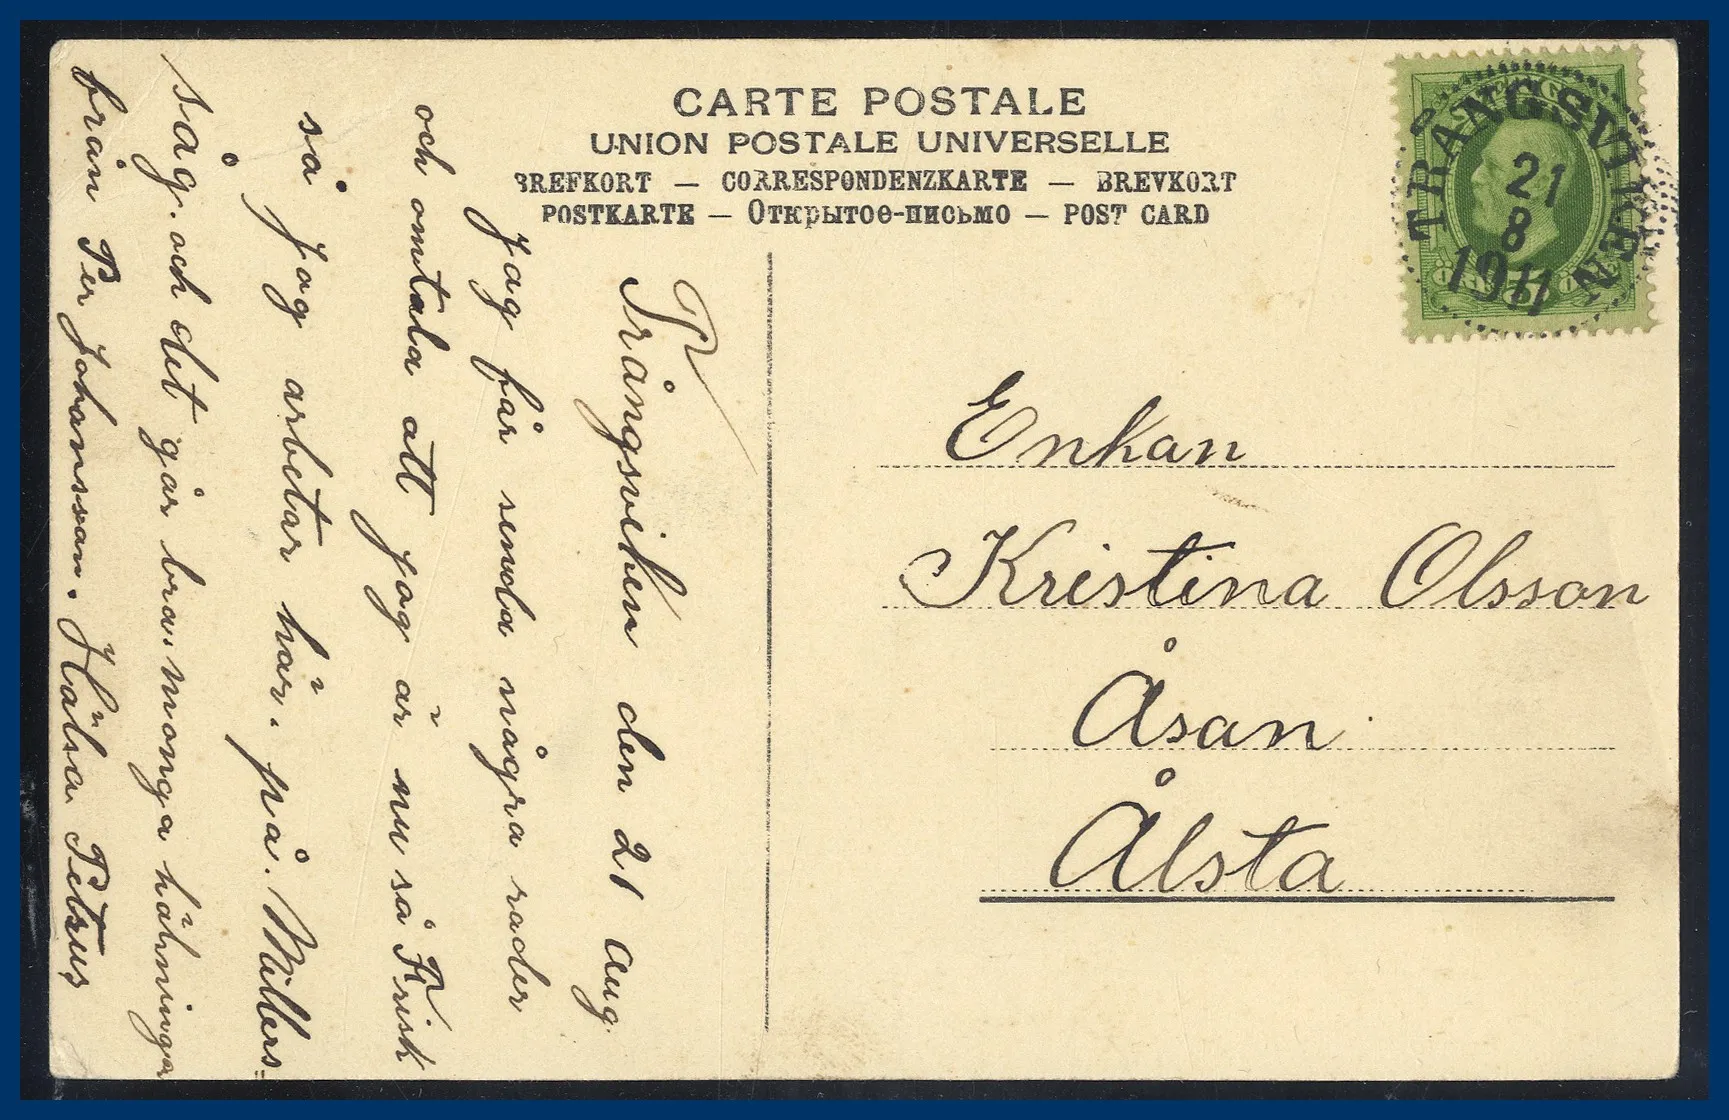 CARTE POSTALE
UNION POSTALE UNIVERSELLE
BREFKORT — CORRESPONDENZKARTE — BREVKORT
POSTKARTE — Открытое-письмо — POST CARD
TRÅNGSVIKEN
21
8
1911
Enkan
Kristina Olsson
Åsan
Ålsta
Trångsviken den 21 aug
Jag får senda några rader
och omtala att jag är nu så Frisk
så jag arbetar här. på. Millers=
såg. och det går bra. monga hälningar
från Per Johansson. Hälsa Petrus